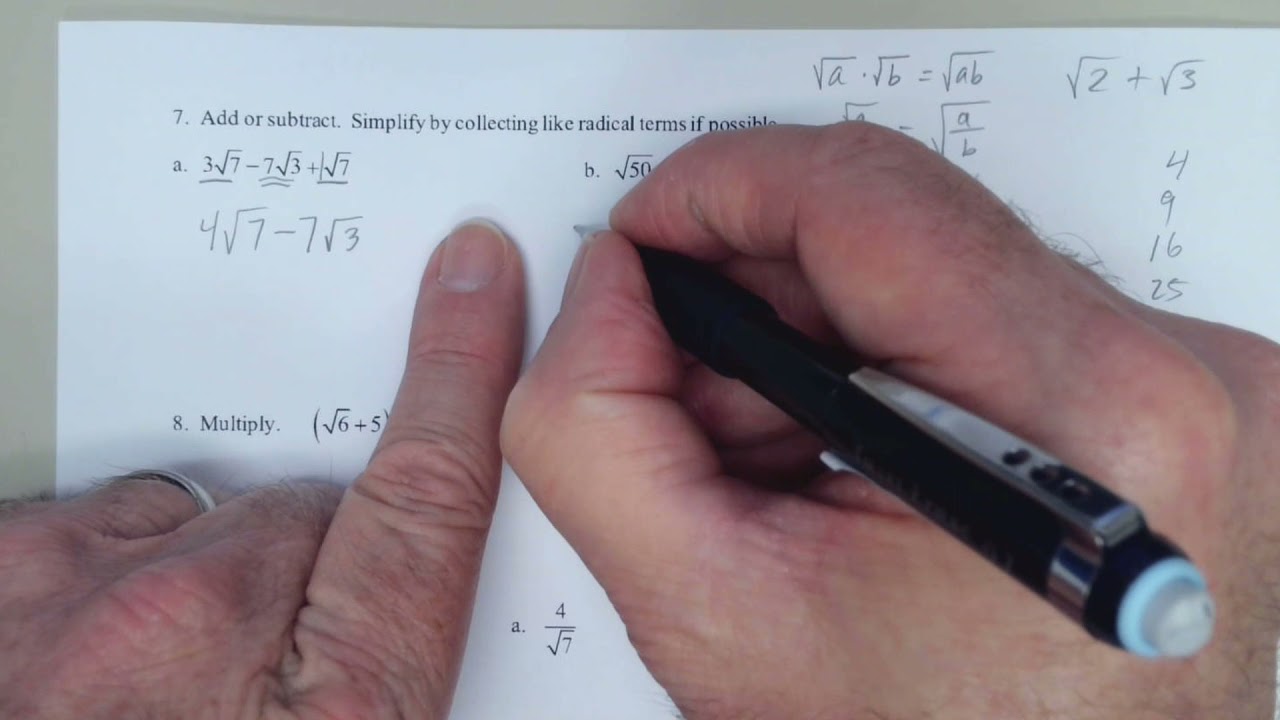 √a · √b = √ab
√2 + √3
7. Add or subtract. Simplify by collecting like radical terms if possible
= √(a/b)
a. 3√7 − 7√3 + 1√7
b. √50
4
4√7 − 7√3
9
16
25
8. Multiply. (√6 + 5)
a. 4/√7